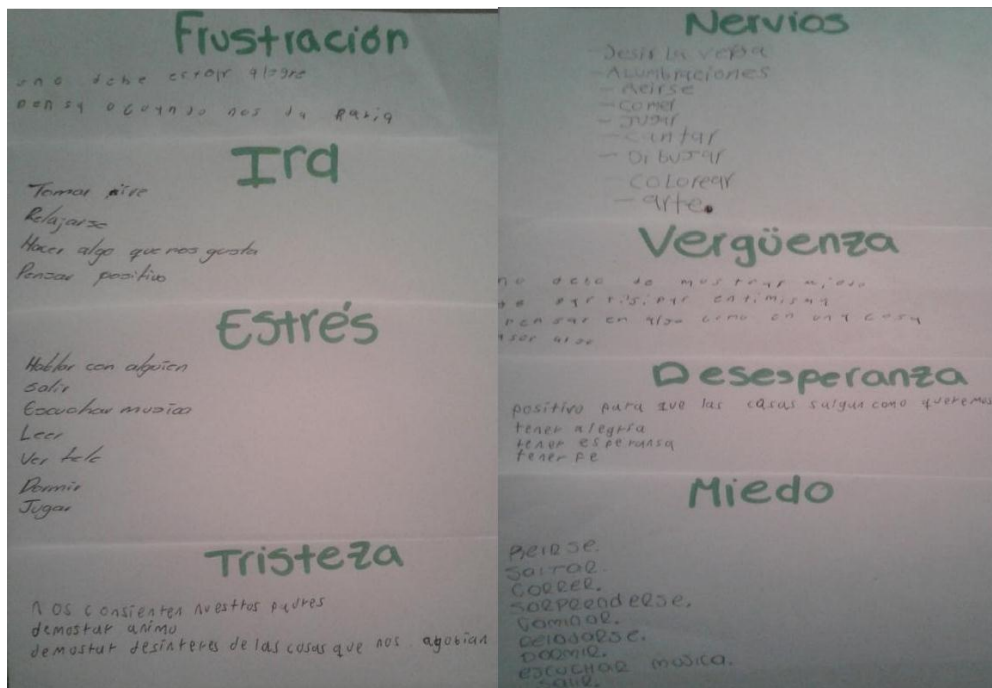 Frustración
uno debe estar alegre
cuando nos da Rabia
Ira
Tomar aire
Relajarse
Hacer algo que nos gusta
Pensar positivo
Estrés
Hablar con alguien
salir
Escuchar musica
Leer
Ver tele
Dormir
Jugar
Tristeza
nos consienten nuestros padres
demostar animo
demostar desinteres de las cosas que nos agobian
Nervios
- Desir la verda
- Alumbraciones
- Reirse
- Comer
- Jugar
- Cantar
- Dibujar
- COLorear
- arte.
Vergüenza
no debe de mostrar miedo
pensar en algo como en una cosa
Desesperanza
positivo para que las cosas salgan como queremos
tener alegría
tener esperansa
tener fe
Miedo
Reirse.
Saltar.
Correr.
Sorprenderse.
Caminar.
Relajarse.
Dormir.
escuchar musica.
salir.